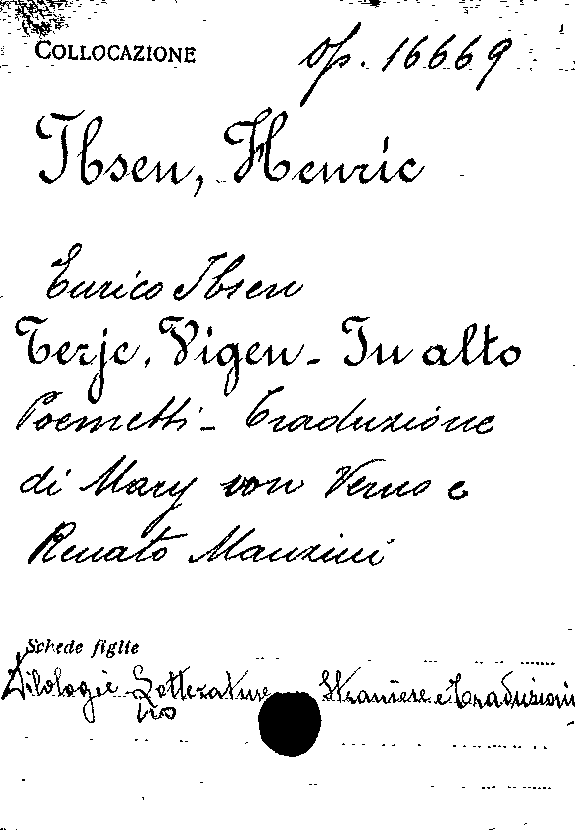 COLLOCAZIONE Op. 16669
Ibsen, Henric
Enrico Ibsen
Terje, Vigen - In alto
Poemetti - Traduzione
di Mary von Verno e
Renato Manzini
Schede figlie
Filologie Letterature Straniere e Traduzioni